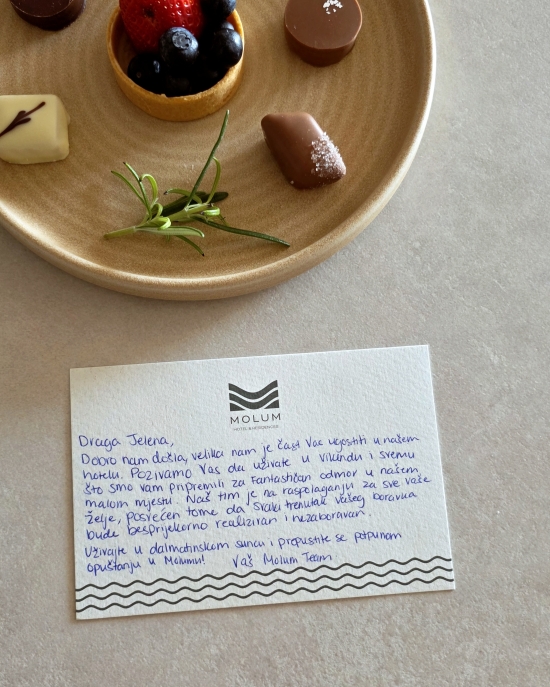 MOLUM
HOTEL & RESIDENCES
Draga Jelena,
Dobro nam došla, velika nam je čast Vas ugostiti u našem
hotelu. Pozivamo Vas da uživate u vikendu i svemu
što smo vam pripremili za fantastičan odmor u našem
malom mjestu. Naš tim je na raspolaganju za sve vaše
želje, posvećen tome da svaki trenutak vašeg boravka
bude besprijekorno realiziran i nezaboravan.
Uživajte u dalmatinskom suncu i prepustite se potpunom
opuštanju u Molumu! Vaš Molum Team